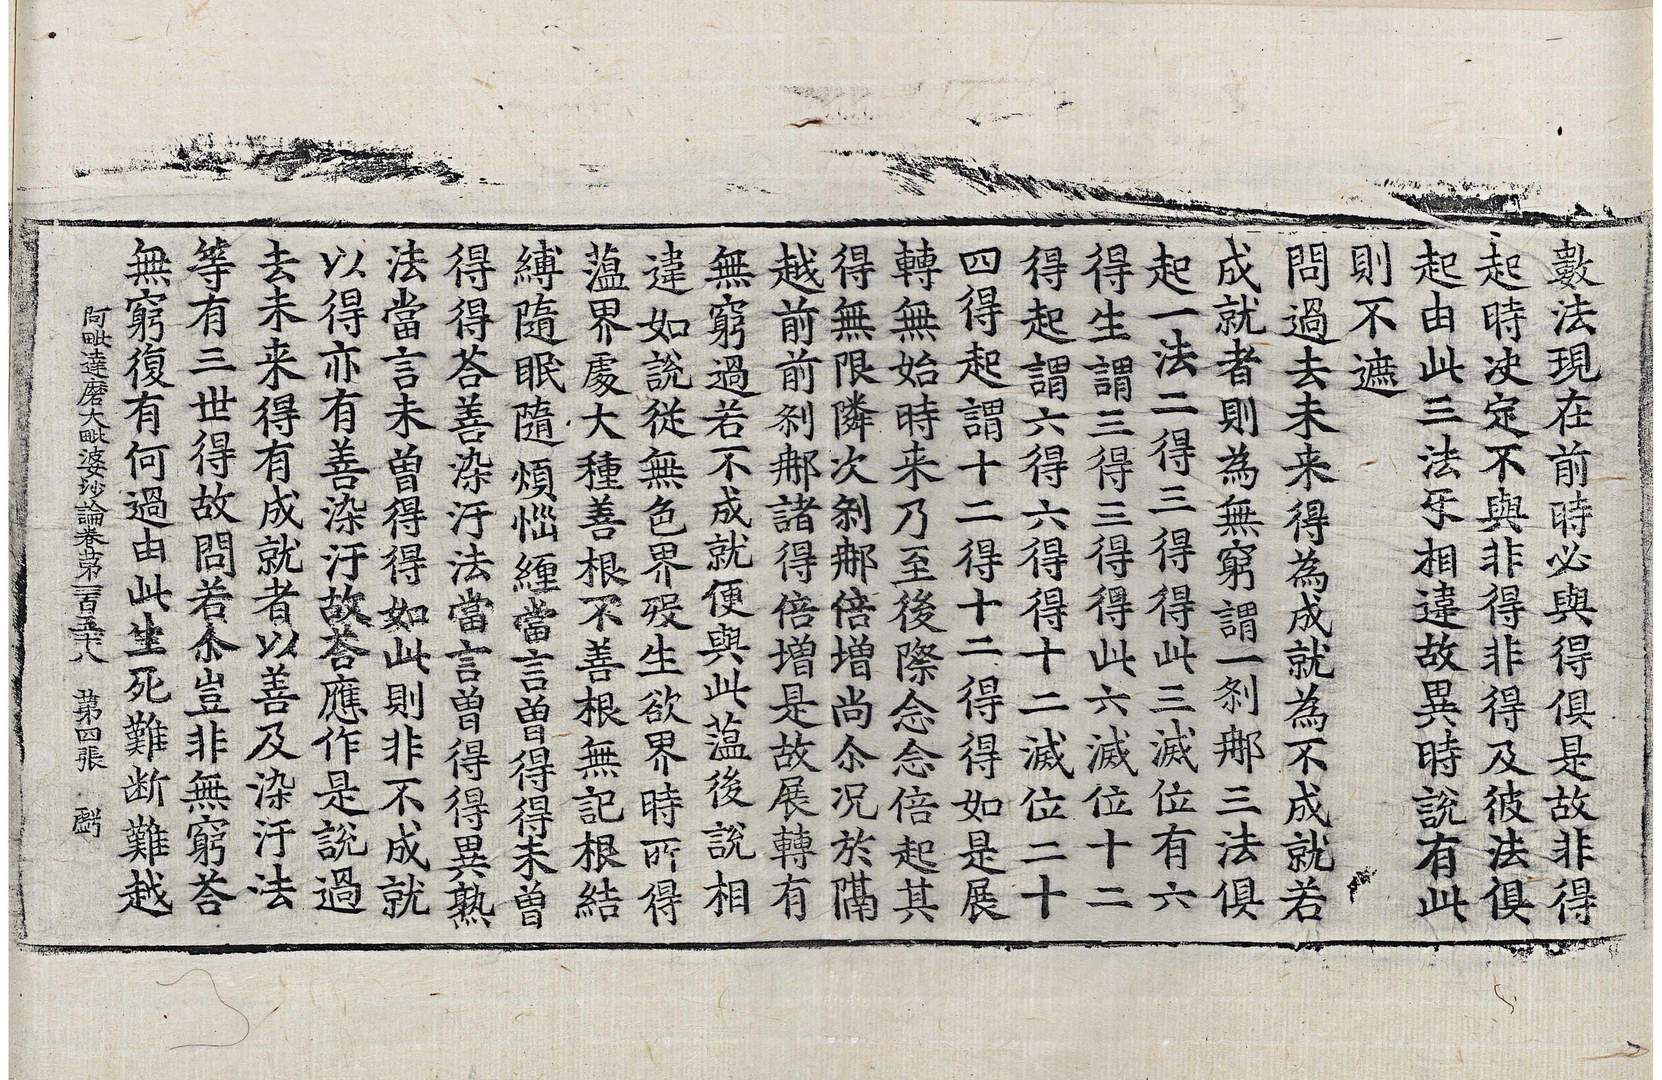 數法現在前時必與得俱是故非得
起時決定不與非得非得及彼法俱
起由此三法乎相違故異時說有此
則不遮
問過去未来得為成就為不成就若
成就者則為無窮謂一剎那三法俱
起一法二得三得得此三滅位有六
得生謂三得三得得此六滅位十二
得起謂六得六得得十二滅位二十
四得起謂十二得十二得得如是展
轉無始時来乃至後際念念倍起其
得無限隣次剎那倍增尚尒況於隔
越前前剎那諸得倍增是故展轉有
無窮過若不成就便與此薀後說相
違如說從無色界歿生欲界時所得
薀界處大種善根不善根無記根結
縛隨眠隨煩惱纏當言曾得得未曾
得得荅善染汙法當言曾得得異熟
法當言未曾得得如此則非不成就
以得亦有善染汙故荅應作是說過
去未来得有成就者以善及染汙法
等有三世得故問若尒豈非無窮荅
無窮復有何過由此生死難断難越
阿毗達磨大毗婆沙論卷第一百五十八　第四張